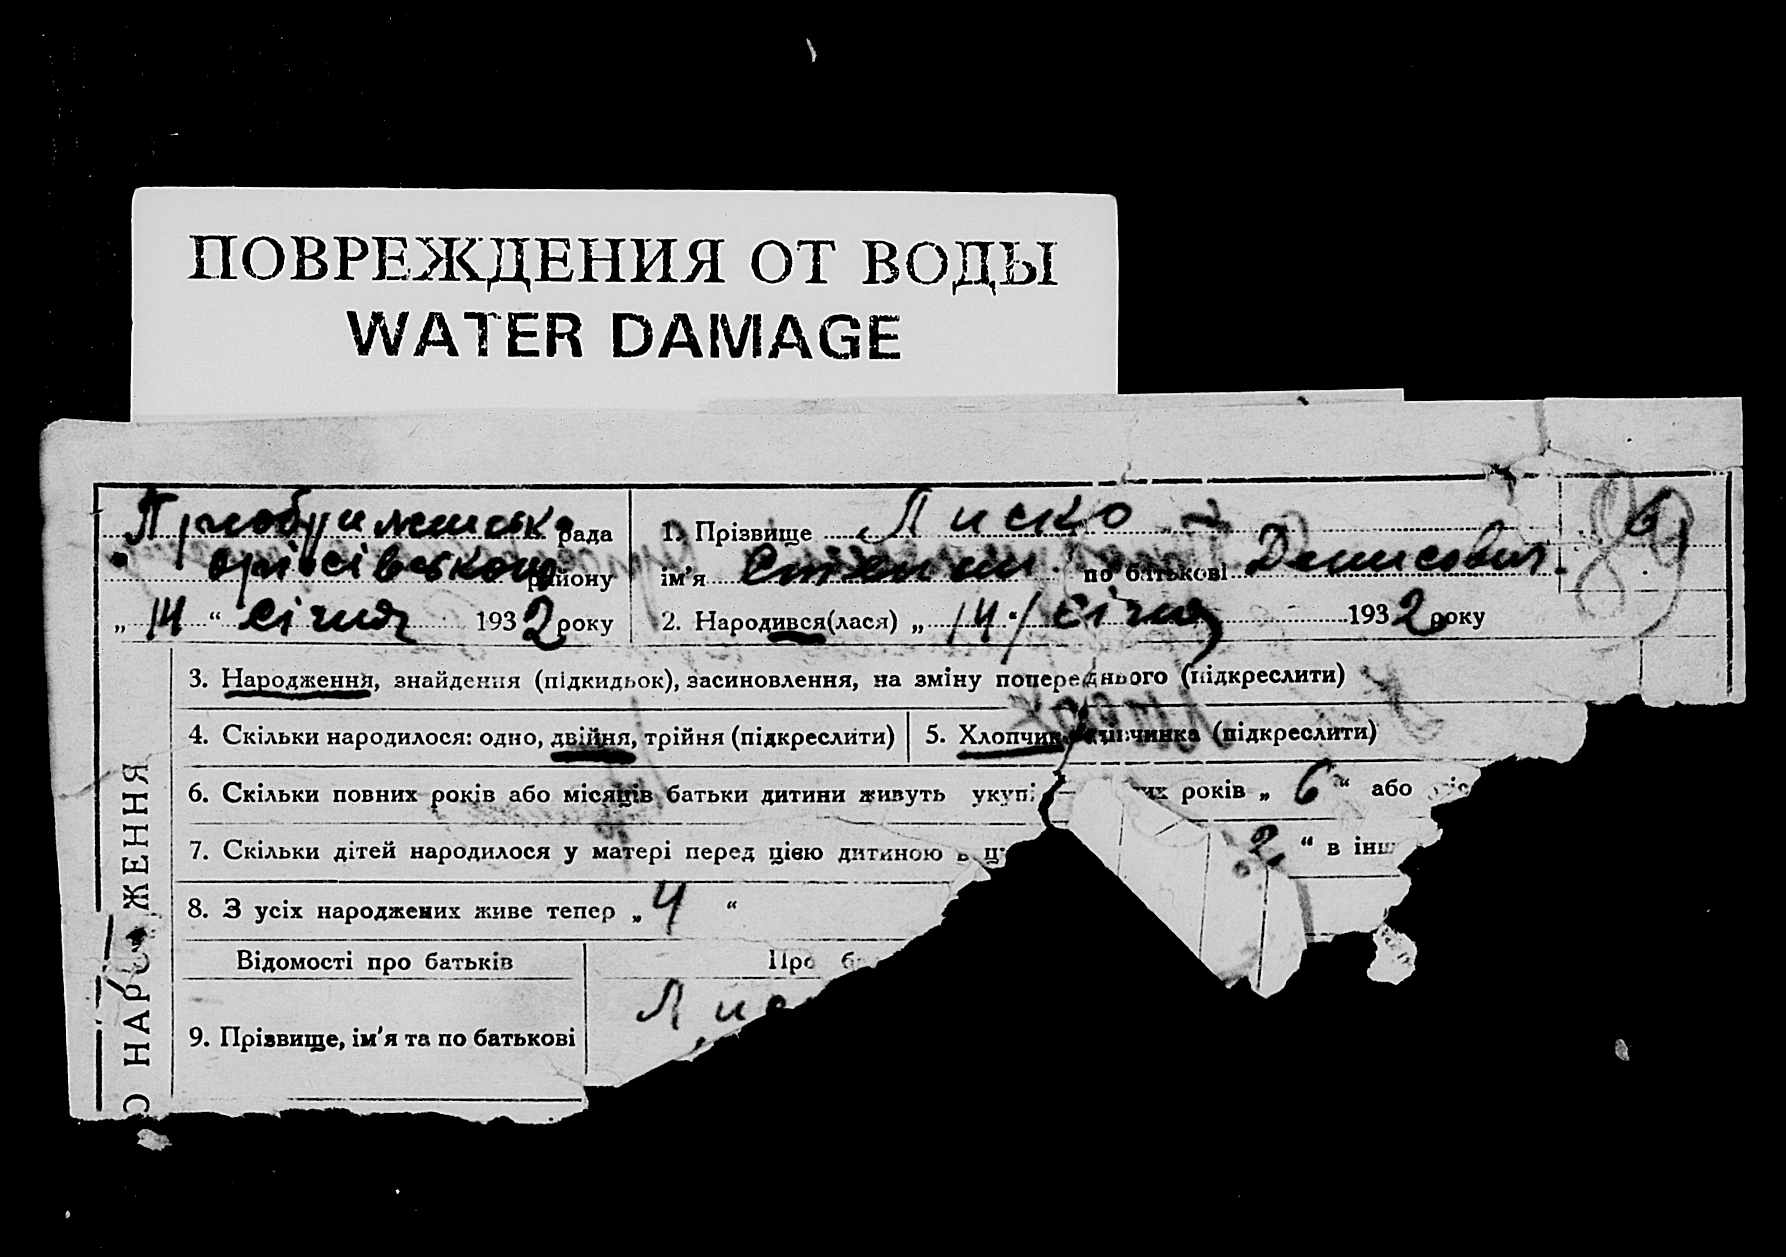 ПОВРЕЖДЕНИЯ ОТ ВОДЫ
WATER DAMAGE
рада
району
„ 14 “ січня 1932 року
1. Прізвище Лиско
ім’я по батькові Денисович
2. Народився(лася) „ 14 “ січня 1932 року
89
3. Народження, знайдення (підкидьок), засиновлення, на зміну попереднього (підкреслити)
4. Скільки народилося: одно, двійня, трійня (підкреслити)
5. Хлопчик (підкреслити)
6. Скільки повних років або місяців батьки дитини живуть років „ 6 “ або
7. Скільки дітей народилося у матері перед цією дитиною в 2 “ в
8. З усіх народжених живе тепер „ 4 “
Відомості про батьків
9. Прізвище, ім’я та по батькові